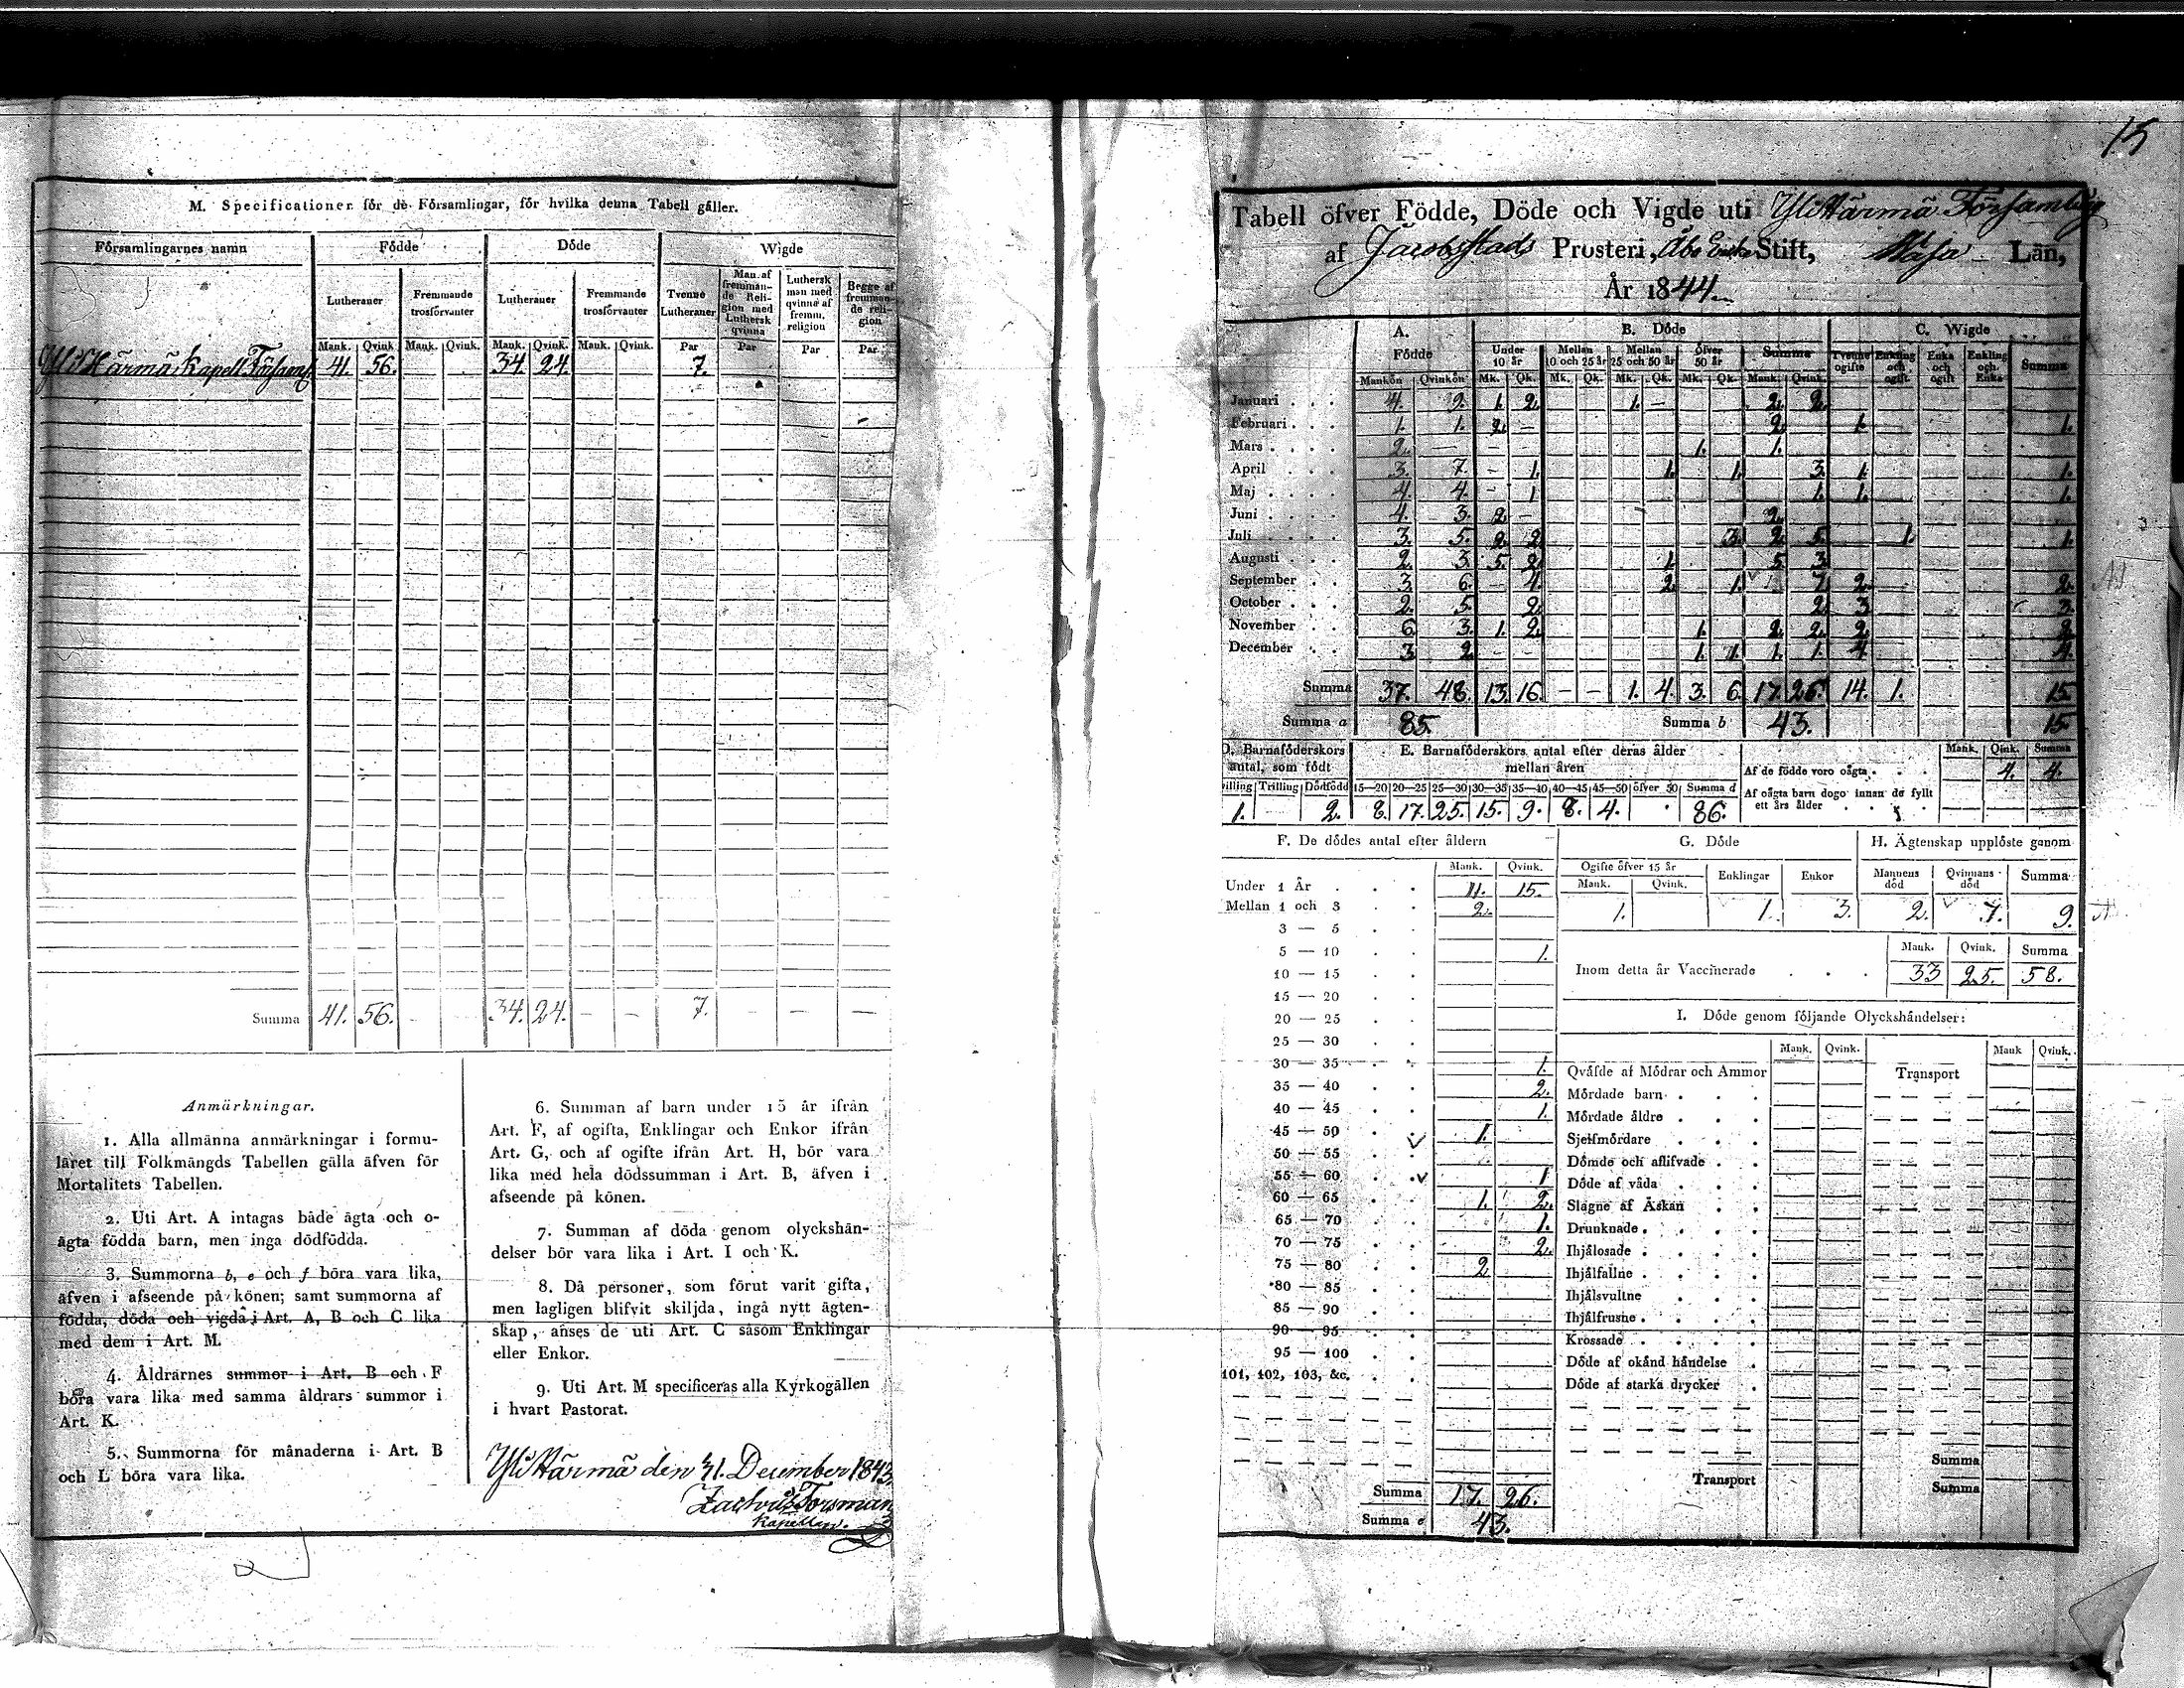 M. Specificationer för de Församlingar, för hvilka denna Tabell gäller.
Församlingarnes namn Födde Döde Wigde
Lutheraner Fremmande trosförvanter Lutheraner Fremmande trosförvanter Tvenne Lutheraner Man af fremmande Religion med Luthersk qvinna Luthersk man med qvinna af fremm. religion Begge af fremmande religion
Mank. Qvink. Mank. Qvink. Mank. Qvink. Mank. Qvink. Par Par Par Par
Yli Härmä Kapell Församl. 41. 56. 34. 24. 7.
Summa 41. 56. - - 34. 24. — — 7. — — —
Anmärkningar.
1. Alla allmänna anmärkningar i formu-
läret till Folkmängds Tabellen gälla äfven för
Mortalitets Tabellen.
2. Uti Art. A intagas både ägta och o-
ägta födda barn, men inga dödfödda.
3. Summorna b, e och f böra vara lika,
äfven i afseende på könen; samt summorna af
födda, döda och vigda i Art. A, B och C lika
med dem i Art. M.
4. Åldrarnes summor i Art. B och F
böra vara lika med samma åldrars summor i
Art. K.
5. Summorna för månaderna i Art. B
och L böra vara lika.
6. Summan af barn under 15 år ifrån
Art. F, af ogifta, Enklingar och Enkor ifrån
Art. G, och af ogifte ifrån Art. H, bör vara
lika med hela dödssumman i Art. B, äfven i
afseende på könen.
7. Summan af döda genom olyckshän-
delser bör vara lika i Art. I och K.
8. Då personer, som förut varit gifta,
men lagligen blifvit skiljda, ingå nytt ägten-
skap, anses de uti Art. C såsom Enklingar
eller Enkor.
9. Uti Art. M specificeras alla Kyrkogällen
i hvart Pastorat.
Yli Härmä den 31. December 1843.
Forsman
Kapellan.
15
Tabell öfver Födde, Döde och Vigde uti Yli Härmä Församling
af Jacobstads Prosteri, Åbo Erke Stift, Wasa Län,
År 1844.
A. B. Döde C. Wigde
Födde Under 10 år Mellan 10 och 25 år Mellan 25 och 50 år Öfver 50 år Summa Tvenne ogifte Enkling och ogift Enka och ogift Enkling och Enka Summa
Mankön Qvinkön Mk. Qk. Mk. Qk. Mk. Qk. Mk. Qk. Mank. Qvink.
Januari . . . 4. 9. 1. 2. 1. - 2. 2.
Februari . . . 1. 1. 2. - 2. 1. 1.
Mars . . . . 2. — — — 1. 1.
April . . . 3. 7. - 1. 1. 1. 3. 1. 1.
Maj . . . . 4. 4. - 1 1. 1. 1.
Juni . . . . 4. 3. 2. - 2.
Juli . . . . 3. 5. 2. 2. 3. 2. 5. 1. 1.
Augusti . . . 2. 3. 5. 2. 1. 5 3.
September . . 3. 6. - 4. 2. 1. 7. 2. 2.
October . . . 2. 5. 2. 2. 3. 3.
November . . 6. 3. 1. 2. 1. 2. 2. 2. 2.
December . . 3. 2. - - 1. 1. 1. 1. 4. 4.
Summa 37. 48. 13. 16. — — 1. 4. 3. 6. 17. 26. 14. 1. 15
Summa a 85. Summa b 43. 15
D. Barnaföderskors antal, som födt E. Barnaföderskors antal efter deras ålder mellan åren Mank. Qink. Summa
Af de födde voro oägta . . . 4. 4.
Af oägta barn dogo innan de fyllt ett års ålder
villing Trilling Dödfödd 15—20 20—25 25—30 30—35 35—40 40—45 45—50 öfver 50 Summa d
1. 2. 8. 17. 25. 15. 9. 8. 4. 86.
F. De dödes antal efter åldern G. Döde H. Ägtenskap upplöste genom
Mank. Qvink. Ogifte öfver 15 år Mank. Qvink. Enklingar Enkor Mannens död Qvinnans död Summa
1. 1. 3. 2. 7. 9.
Under 1 År . . . 11. 15.
Mellan 1 och 3 . . 2.
3 — 5 . .
5 — 10 . . 1.
10 — 15 . .
15 — 20 . .
20 — 25 . .
25 — 30 . .
30 — 35 . . 1.
35 — 40 . . 2.
40 — 45 . . 1.
45 — 50 . . 1.
50 — 55 . .
55 — 60 . . 1
60 — 65 . . 1. 2.
65 — 70 . . 1.
70 — 75 . . 2.
75 — 80 . . 2
80 — 85 . .
85 — 90 . .
90 — 95 . .
95 — 100 . .
101, 102, 103, &c. . .
Summa 17. 26.
Summa e 43.
Mank. Qvink. Summa
Inom detta år Vaccinerade . . . 33 25. 58.
I. Döde genom följande Olyckshändelser:
Mank. Qvink. Mank Qvink.
Qväfde af Mödrar och Ammor Transport
Mördade barn . . .
Mördade äldre . . .
Sjelfmördare . . .
Dömde och aflifvade . .
Döde af våda . . .
Slagne af Åskan . .
Drunknade . . . .
Ihjälosade . . . .
Ihjälfallne . . . .
Ihjälsvultne . . .
Ihjälfrusne . . . .
Krossade . . . .
Döde af okänd händelse .
Döde af starka drycker .
Summa
Transport Summa